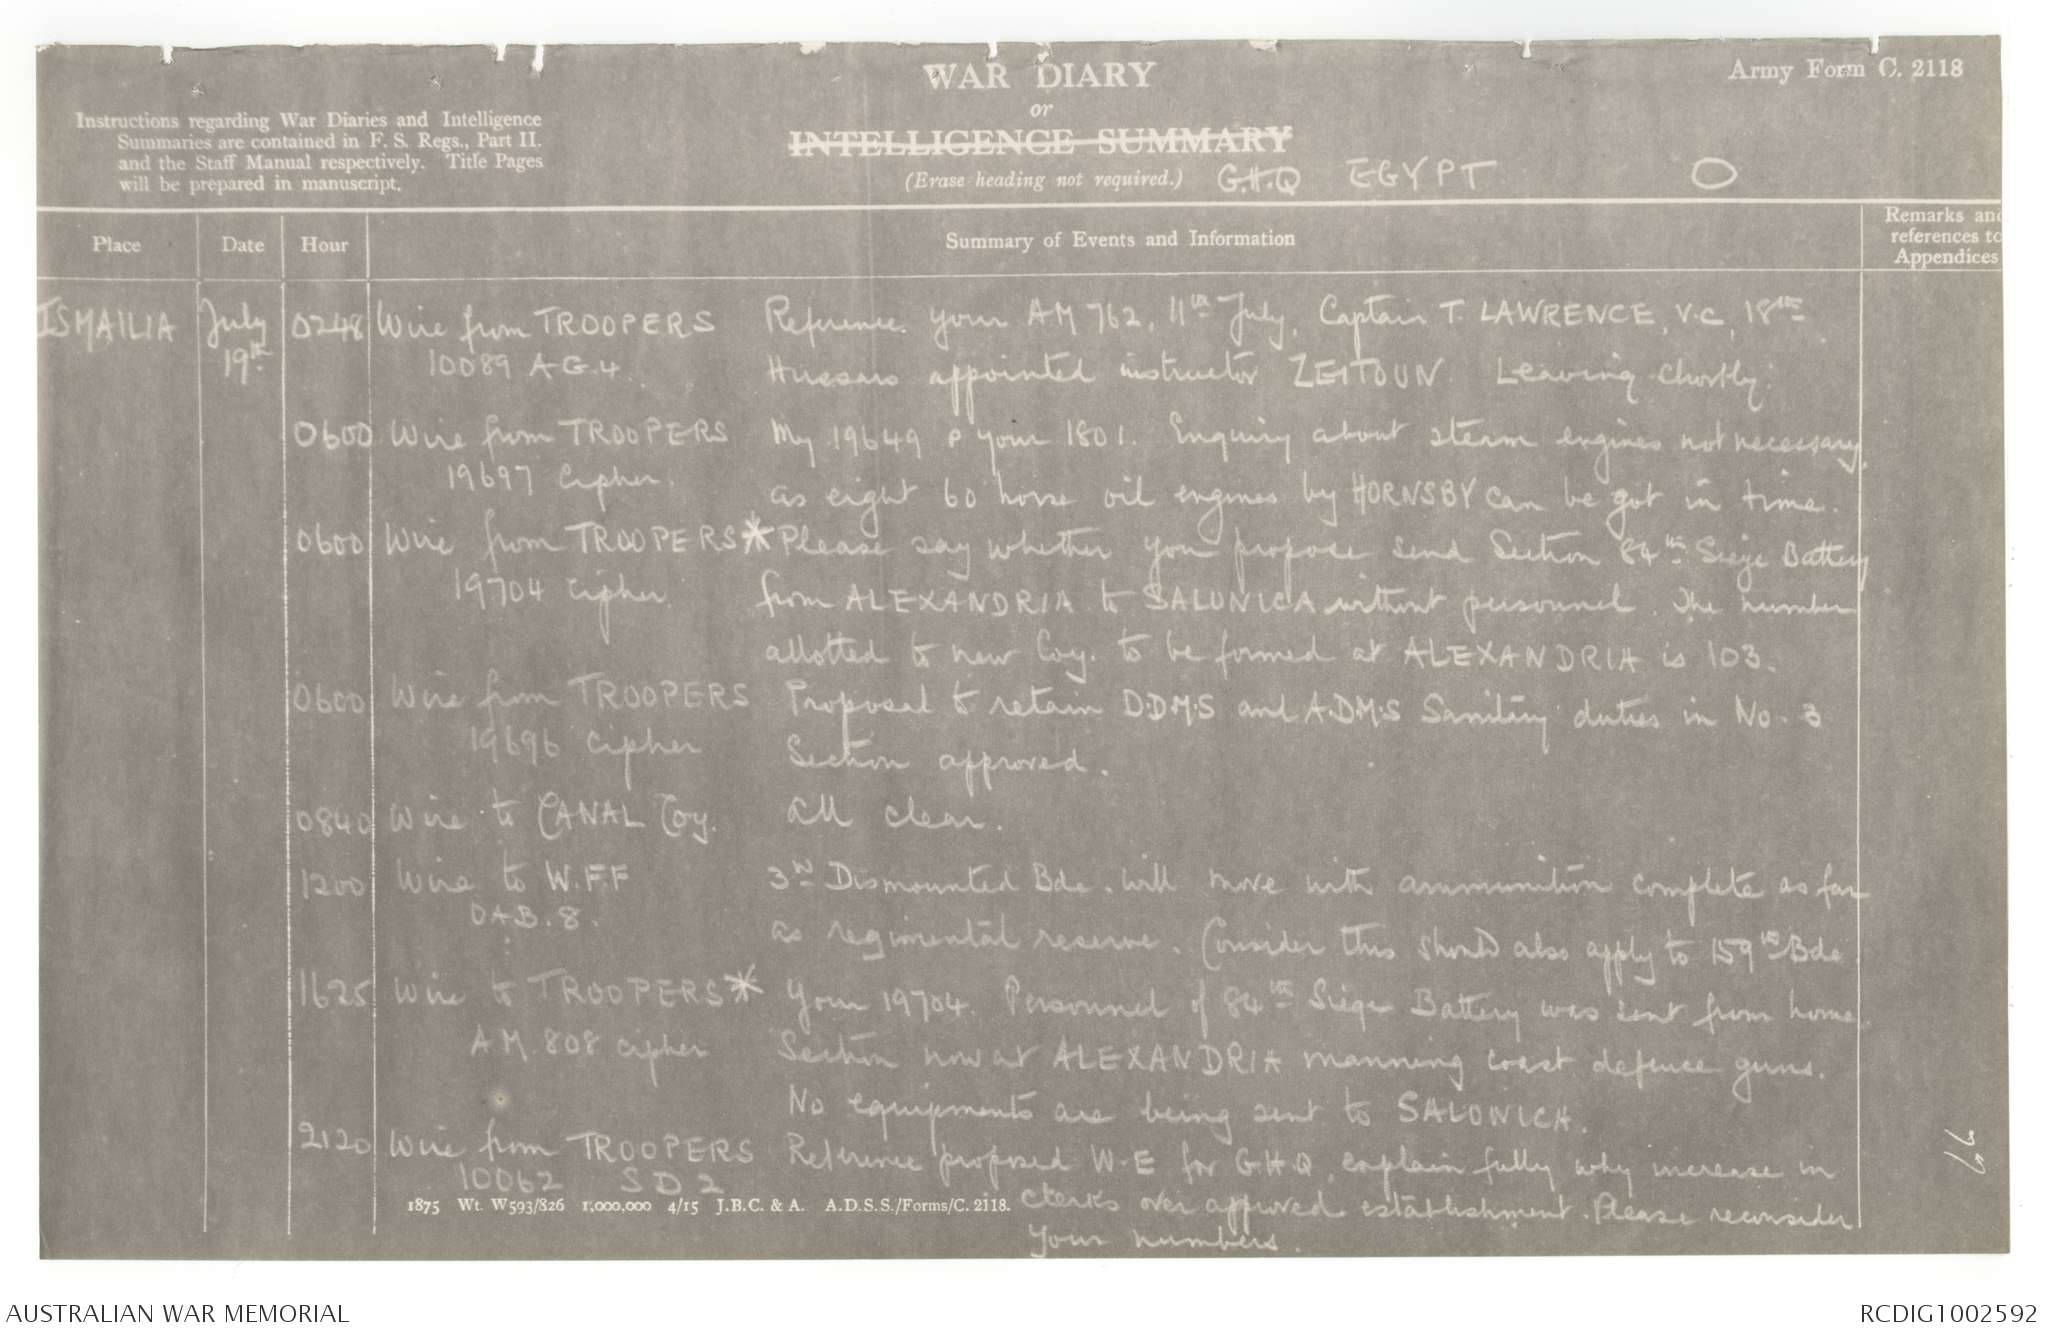 WAR DIARY
or
INTELLIGENCE SUMMARY
(Erase heading not required.) G.H.Q EGYPT O
Army Form C. 2118
Instructions regarding War Diaries and Intelligence
Summaries are contained in F. S. Regs., Part II.
and the Staff Manual respectively. Title Pages
will be prepared in manuscript.
Place Date Hour Summary of Events and Information
Remarks and
references to
Appendices
ISMAILIA July 0248 Wire from TROOPERS Reference your AM 762, 11th July, Captain T. LAWRENCE, V.C, 18th
19th 10089 A.G.4. Hussars appointed instructor ZEITOUN. Leaving shortly.
0600 Wire from TROOPERS My 19649 & your 1801. Enquiry about steam engines not necessary,
19697 cipher. as eight 60 horse oil engines by HORNSBY can be got in time.
0600 Wire from TROOPERS* Please say whether you propose send Section 84th Siege Battery
19704 cipher. from ALEXANDRIA to SALONICA without personnel. The number
allotted to new Coy. to be formed at ALEXANDRIA is 103.
0600 Wire from TROOPERS Proposal to retain D.D.M.S and A.D.M.S Sanitary duties in No. 3
19696 cipher Section approved.
0840 Wire to CANAL Coy. All clear.
1200 Wire to W.F.F 3rd Dismounted Bde. will move with ammunition complete as far
OAB. 8. as regimental reserve. Consider this should also apply to 159th Bde
1625 Wire to TROOPERS* Your 19704. Personnel of 84th Siege Battery was sent from home.
A M. 808 cipher Section now at ALEXANDRIA manning coast defence guns.
No equipments are being sent to SALONICA.
2120 Wire from TROOPERS Reference proposed W.E for G.H.Q, explain fully why increase in
10062 S D 2 clerks over approved establishment. Please reconsider
your numbers.
1875 Wt. W593/826 1,000,000 4/15 J.B.C. & A. A.D.S.S./Forms/C. 2118.
AUSTRALIAN WAR MEMORIAL
RCDIG1002592